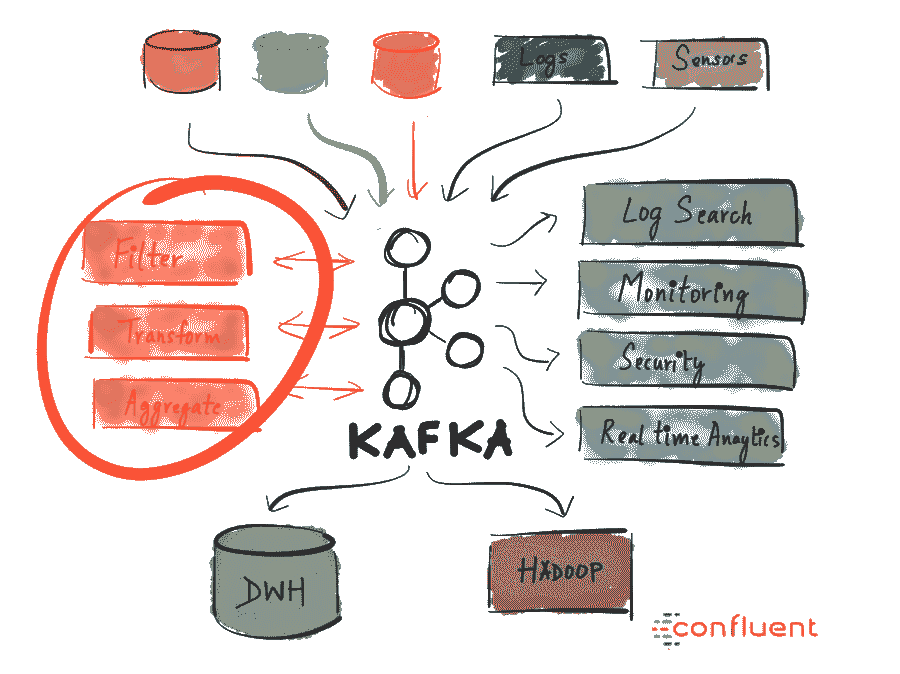 Logs
Sensors
Filter
Transform
Aggregate
Log Search
Monitoring
Security
Real time Anaytics
KAFKA
DWH
HADOOP
confluent